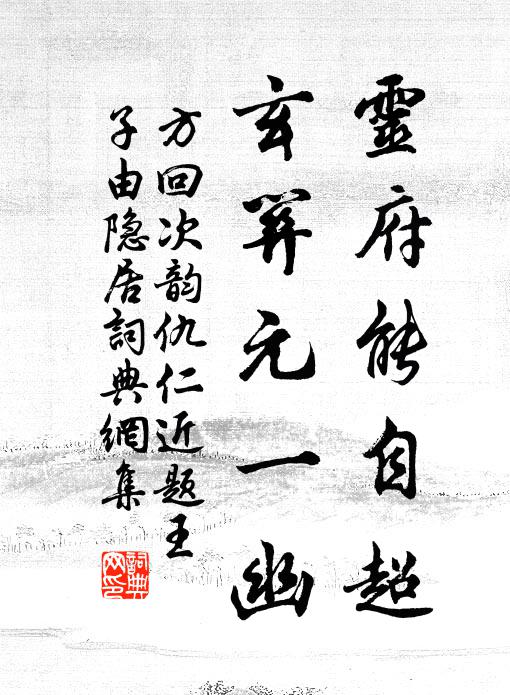 靈府能自超
玄關元一幽
方回次韵仇仁近題王
子由隐居詞典網集
詞典